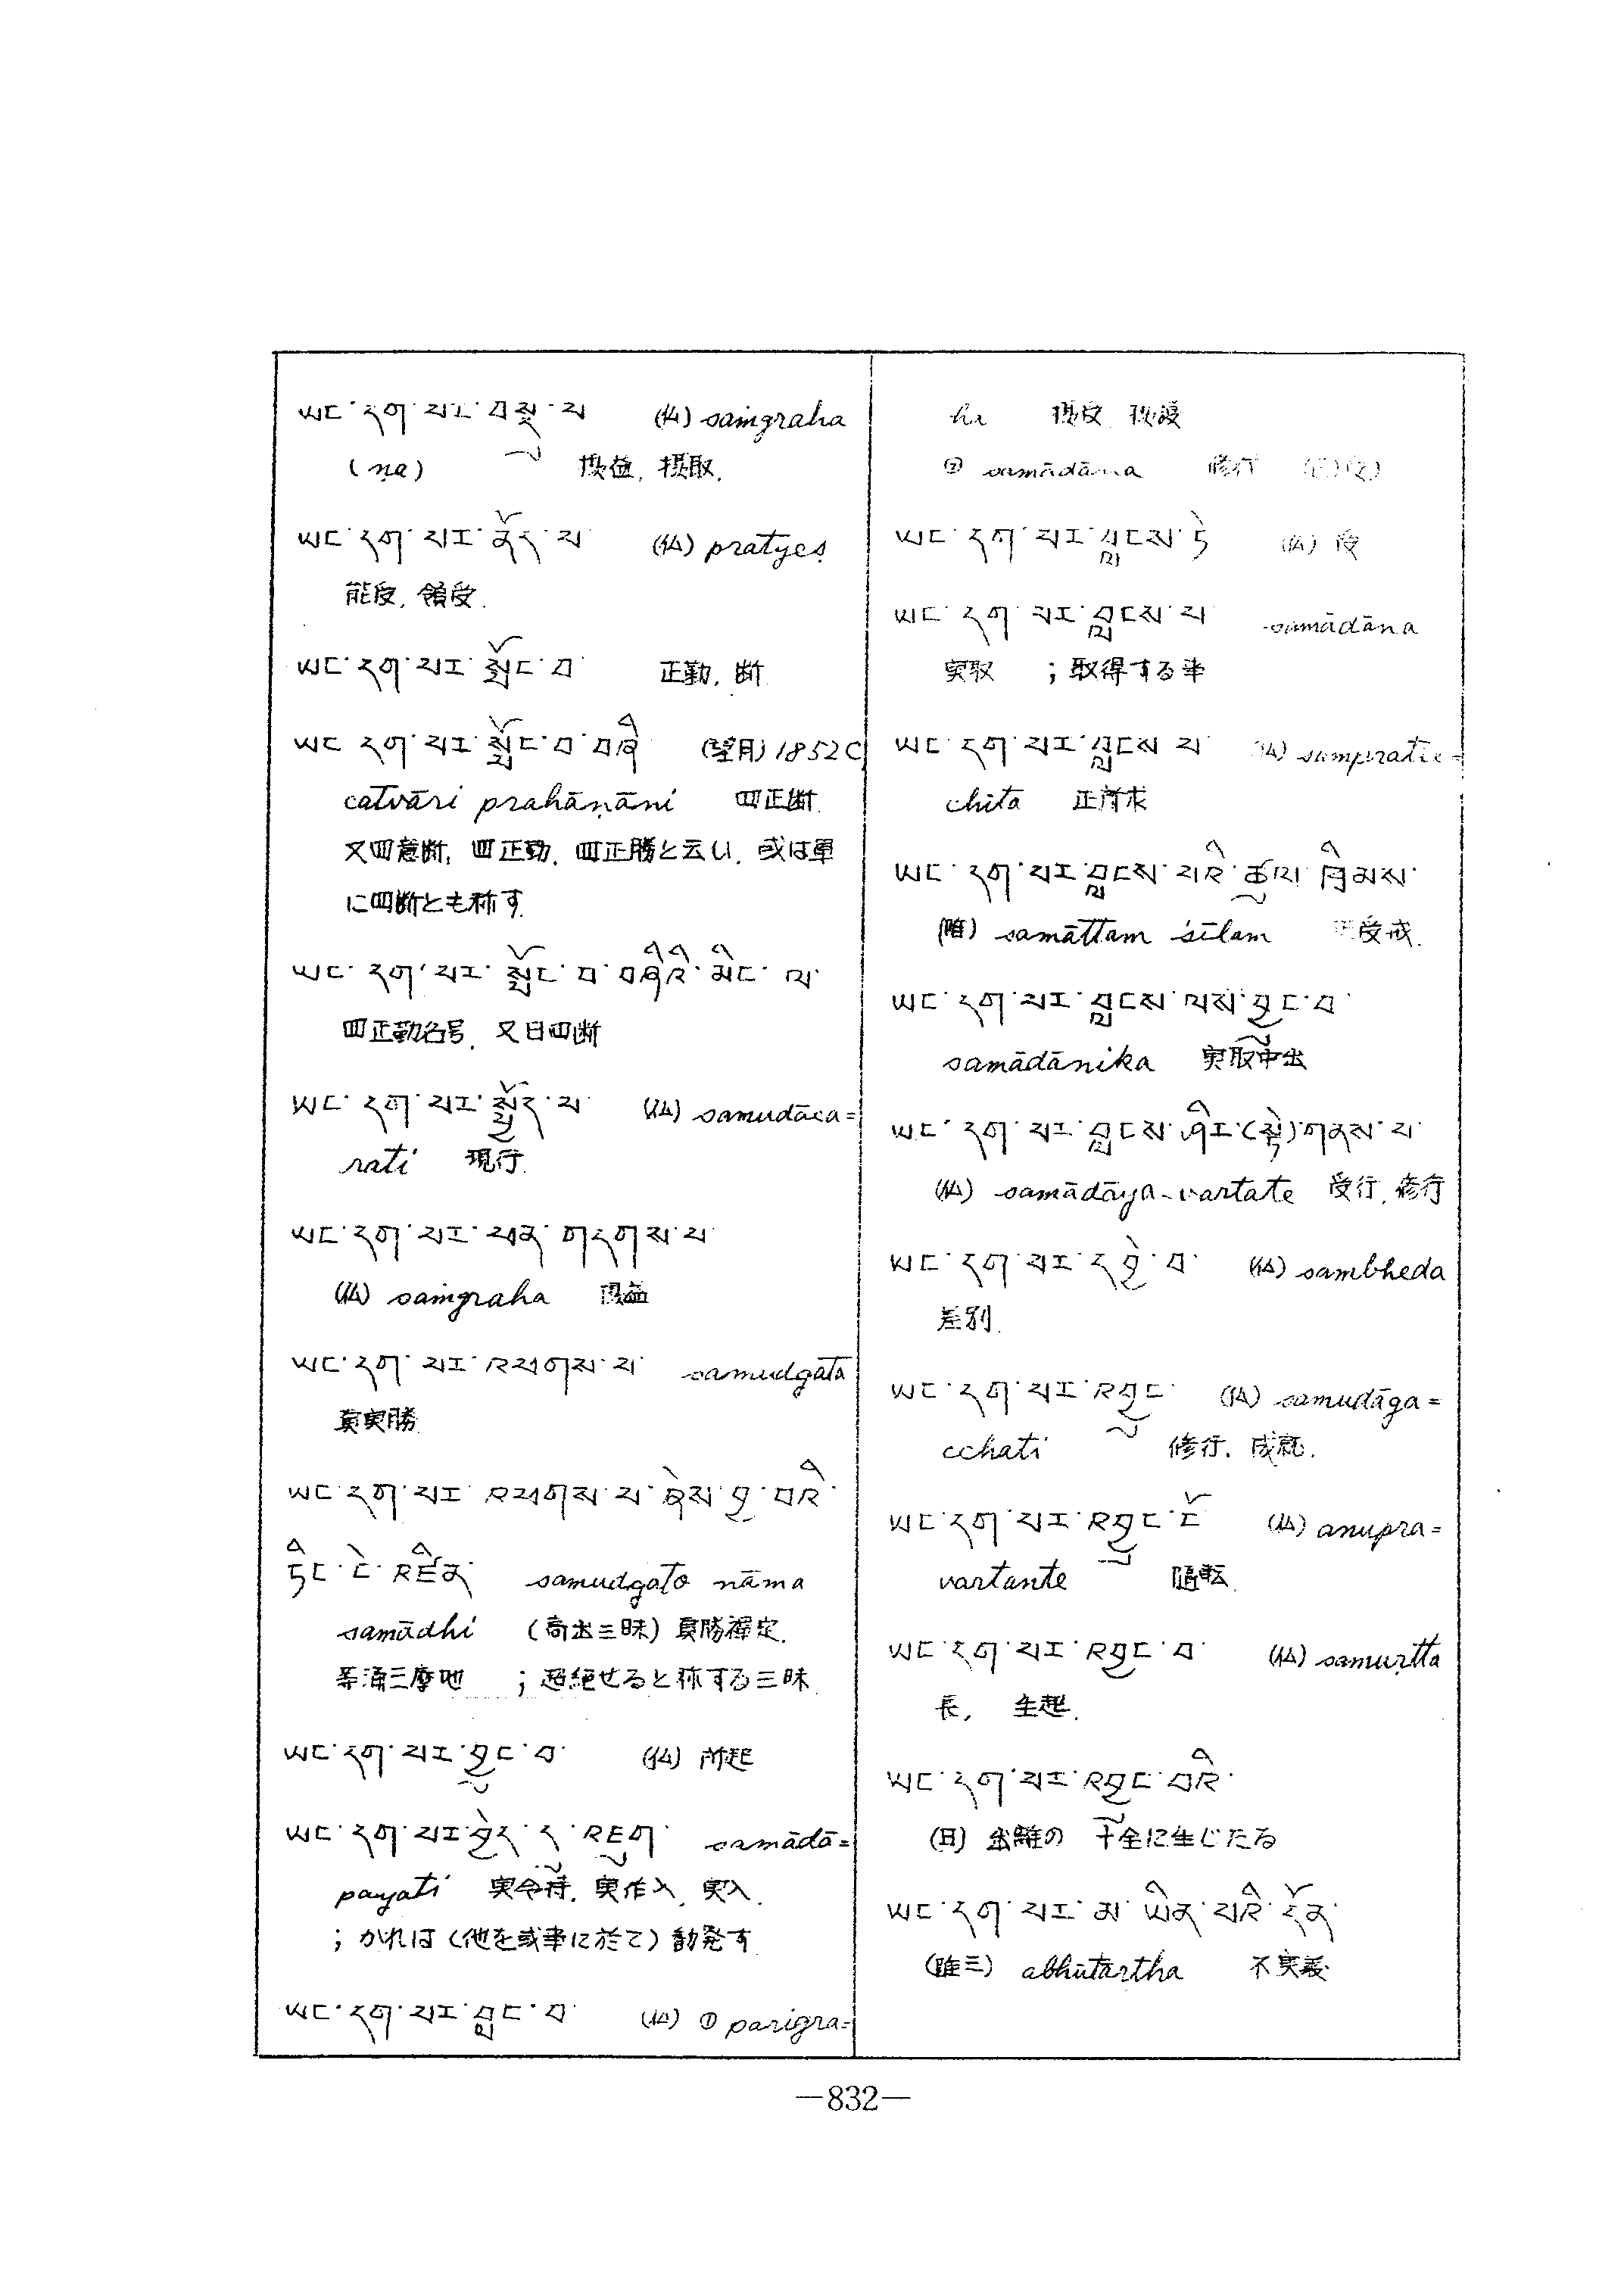 ཡང་དག་པར་བསྡུ་བ (仏) saṁgraha
(ṇa) 摂益, 摂取.
ཡང་དག་པར་ནོད་པ (仏) pratyeṣ
能受, 領受.
ཡང་དག་པར་སྤོང་བ 正勤, 断
ཡང་དག་པར་སྤོང་བ་བཞི (望月) 1852C
catvāri prahāṇāni 四正断.
又四意断, 四正勤, 四正勝と云い, 或は単
に四断とも称す.
ཡང་དག་པར་སྤོང་བ་བཞིའི་མིང་ལ་
四正勤名号, 又曰四断
ཡང་དག་པར་སྤྱོད་པ (仏) samudāca=
rati 現行.
ཡང་དག་པར་ཕན་གདགས་པ་
(仏) saṁgraha 摂益
ཡང་དག་པར་འཕགས་པ་ samudgata
真実勝
ཡང་དག་པར་འཕགས་པ་ཞེས་བྱ་བའི་
ཏིང་ངེ་འཛིན་ samudgato nāma
samādhi (高出三昧) 真勝禪定.
等涌三摩地 ; 超絶せると称する三昧
ཡང་དག་པར་བྱུང་བ་ (仏) 所起
ཡང་དག་པར་བྱེད་དུ་འཇུག་ samādā=
payati 実令持, 実作入, 実入.
; かれは (他を或事に於て) 勧発す
ཡང་དག་པར་བླང་བ་ (仏) ① parigra=
ha 摂受
② samādāna 修行
ཡང་དག་པར་བླངས་ཏེ (仏) 受
ཡང་དག་པར་བླངས་པ samādāna
実取 ; 取得する事
ཡང་དག་པར་བླངས་པ (仏) sampratīc=
chita 正所求
ཡང་དག་པར་བླངས་པའི་ཚུལ་ཁྲིམས་
(唯) samāttam śīlam 受戒.
ཡང་དག་པར་བླངས་ལས་བྱུང་བ་
samādānika 実取中出
ཡང་དག་པར་བླངས་ཤིང་(སྟེ)གནས་པ་
(仏) samādāya-vartate 受行, 修行
ཡང་དག་པར་དབྱེ་བ་ (仏) sambheda
差別.
ཡང་དག་པར་འབྱུང་ (仏) samudāga=
cchati 修行, 成就.
ཡང་དག་པར་འབྱུང་ངོ (仏) anupra=
vartante 随転.
ཡང་དག་པར་འབྱུང་བ་ (仏) samuṛtta
長, 生起.
ཡང་དག་པར་འབྱུང་བའི་
(日) 出離の 十全に生じたる
ཡང་དག་པར་མ་ཡིན་པའི་དོན་
(唯三) abhūtārtha 不実義
—832—